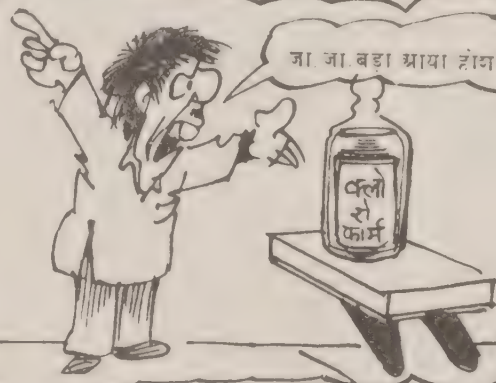 जा. जा. बड़ा आया होश
क्लो
रो
फार्म